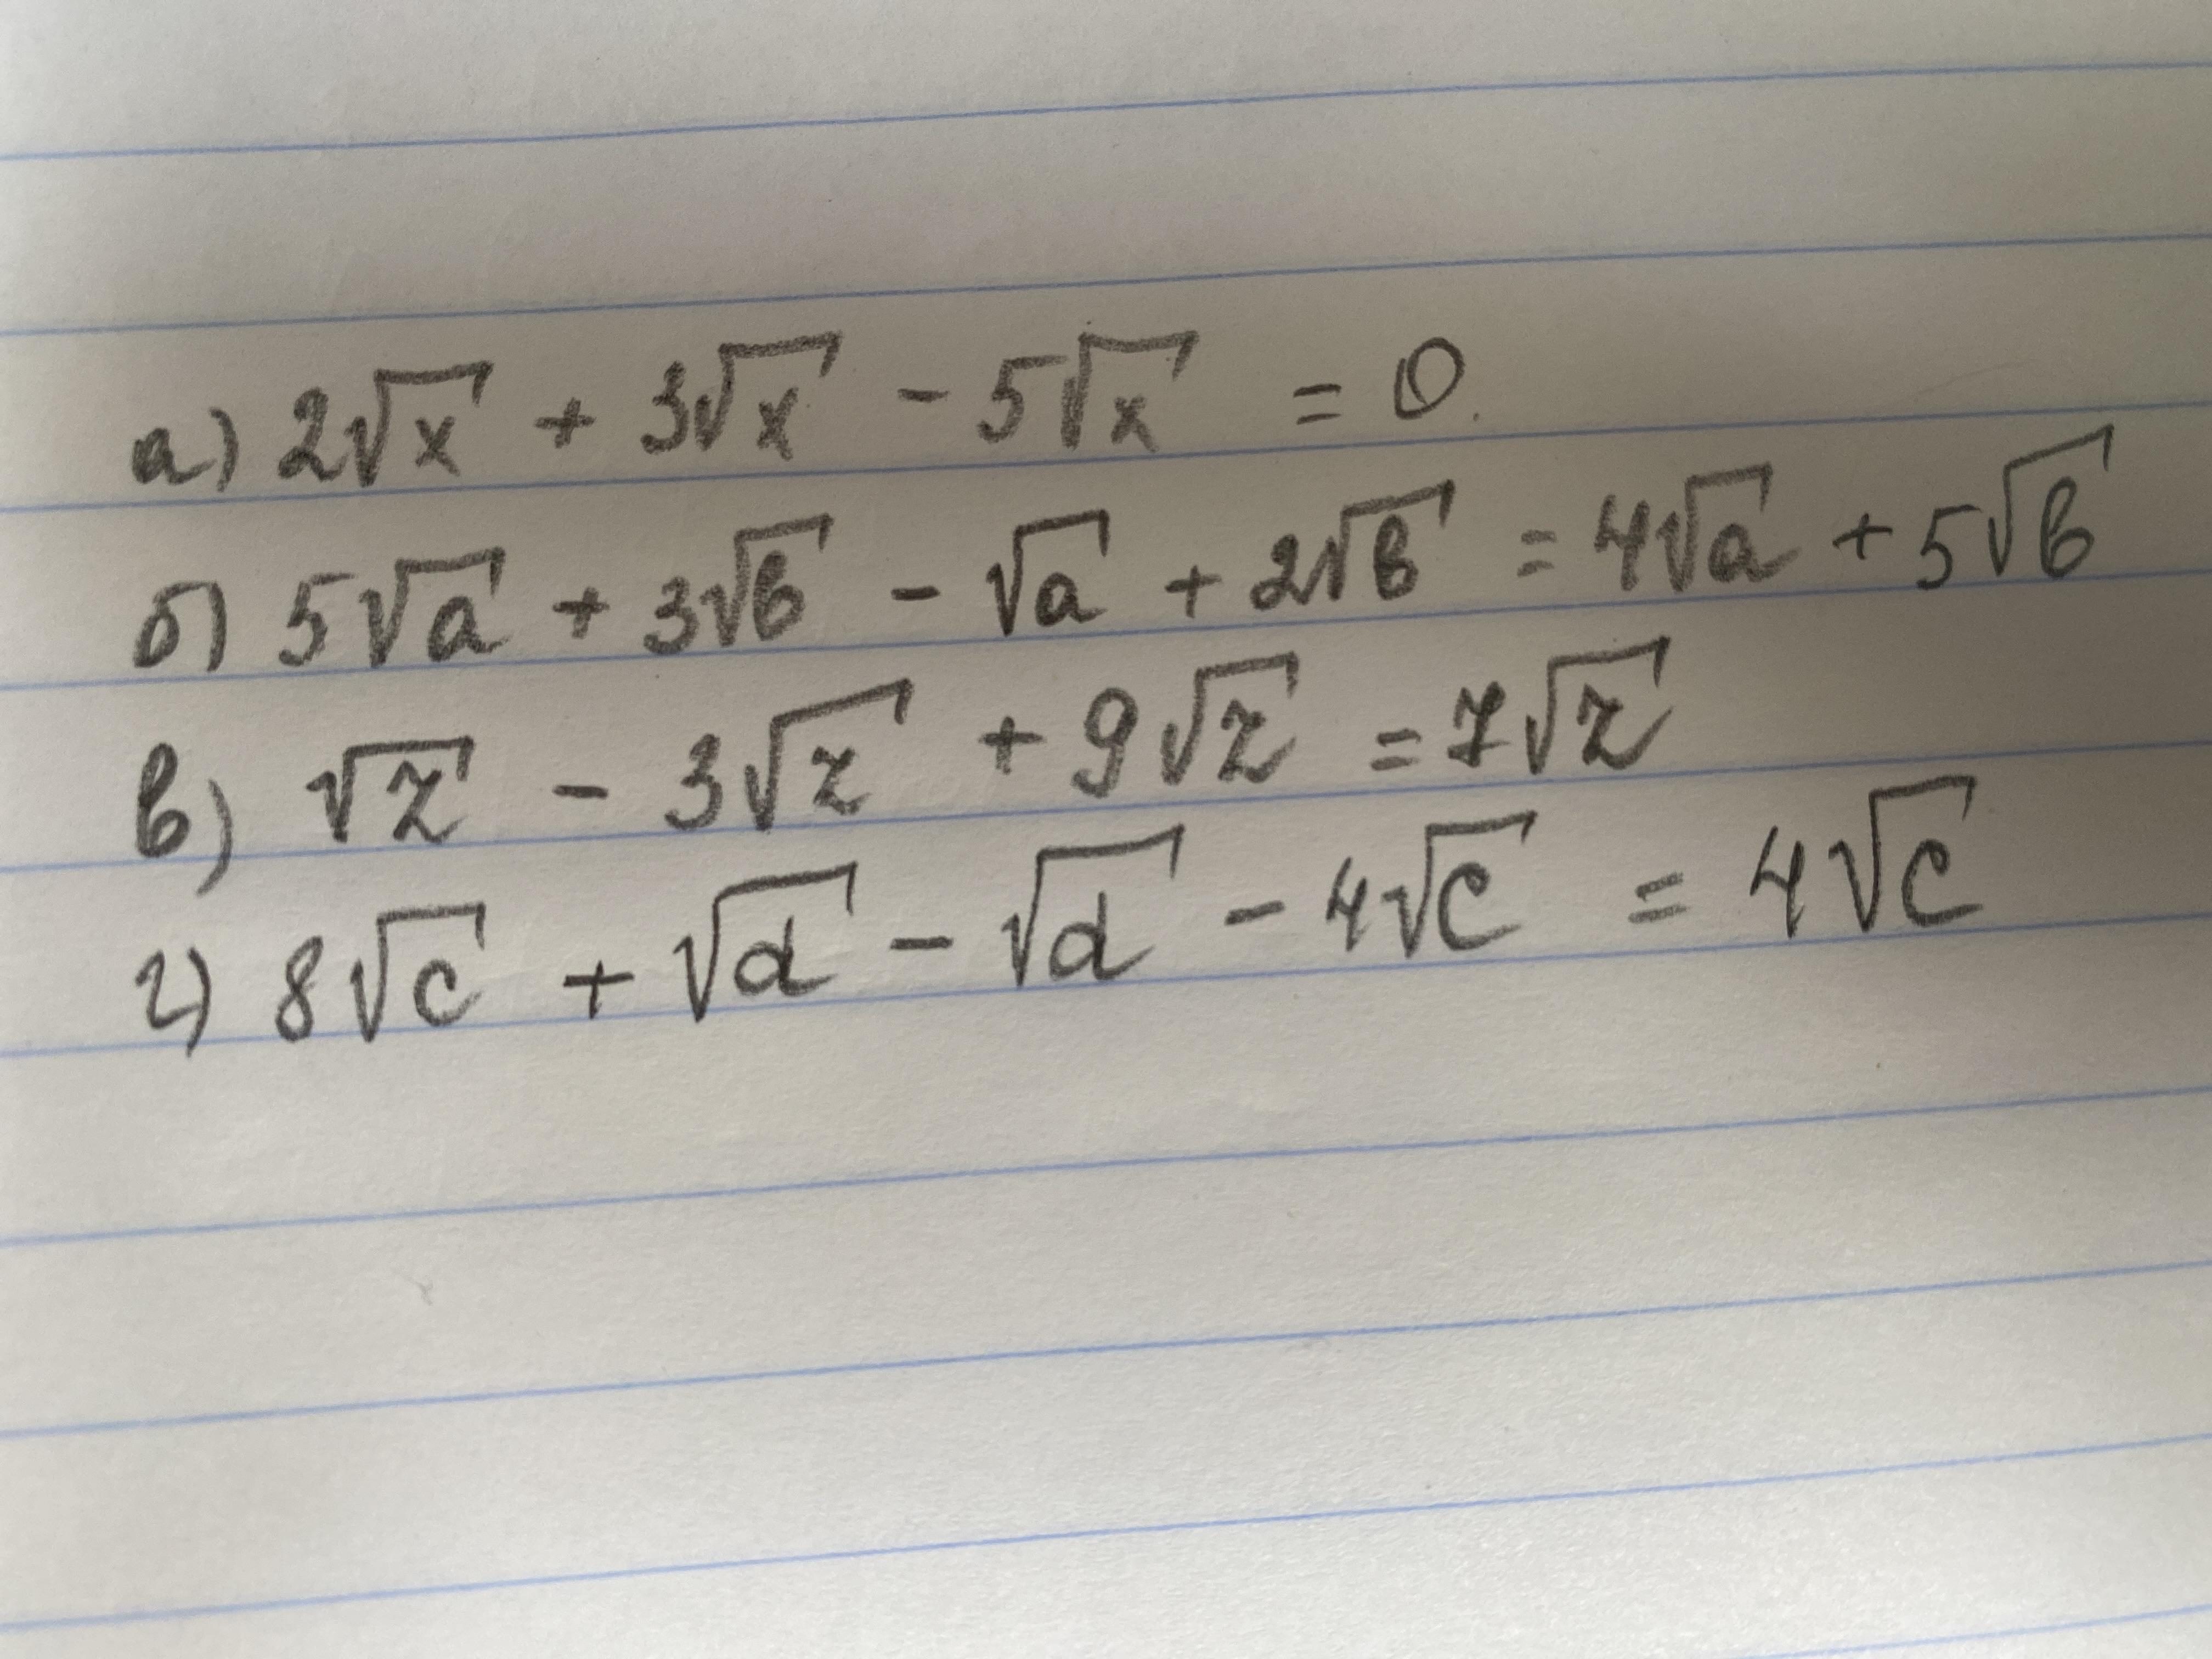 а) 2√x + 3√x - 5√x = 0.
б) 5√a + 3√b - √a + 2√b = 4√a + 5√b
в) √z - 3√z + 9√z = 7√z
г) 8√c + √d - √d - 4√c = 4√c